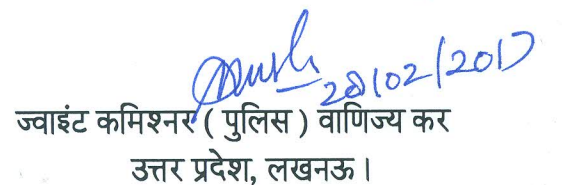 28/02/2017
ज्वाइंट कमिश्नर ( पुलिस ) वाणिज्य कर
उत्तर प्रदेश, लखनऊ।